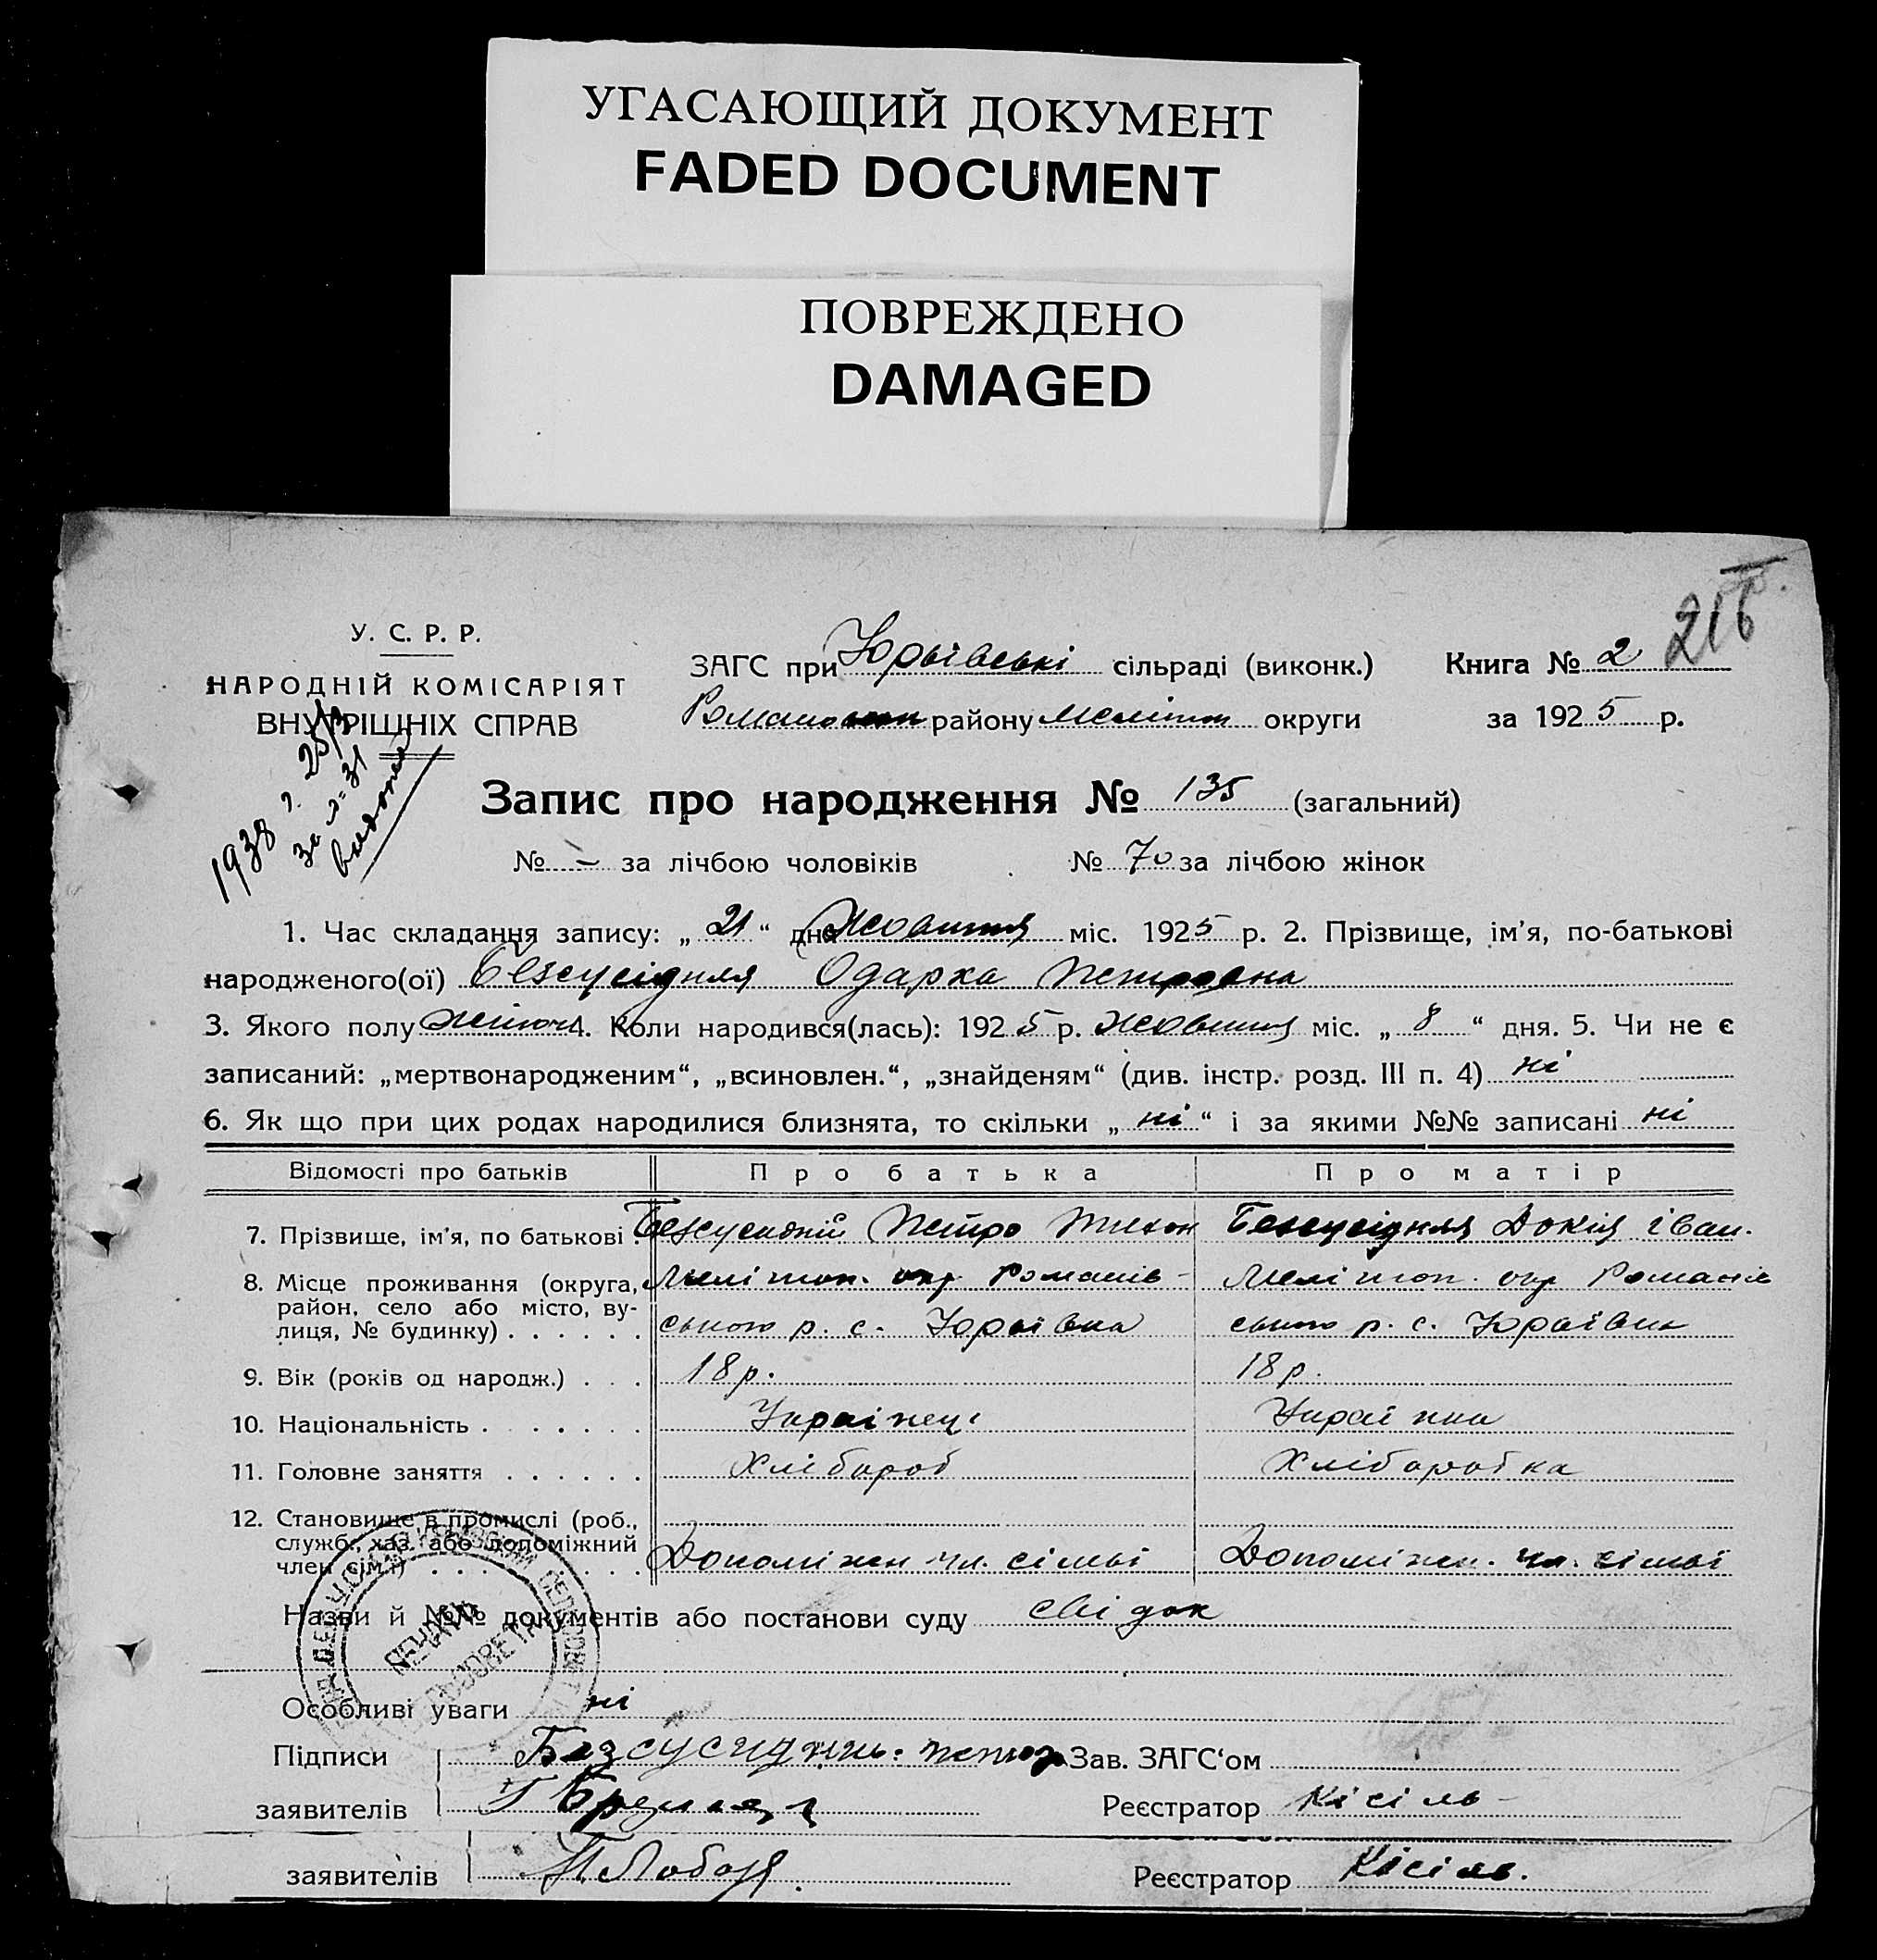 УГАСАЮЩИЙ ДОКУМЕНТ
FADED DOCUMENT
ПОВРЕЖДЕНО
DAMAGED
216
У. С. Р. Р.
НАРОДНІЙ КОМІСАРІЯТ
ВНУТРІШНІХ СПРАВ
ЗАГС при Юрьївські сільраді (виконк.) Книга № 2
району Меліт округи за 1925 р.
1938
видано
Запис про народження № 135 (загальний)
№ – за лічбою чоловіків № 70 за лічбою жінок
1. Час складання запису: „ 21 “ дня Жовтня міс. 1925 р. 2. Прізвище, ім’я, по-батькові
народженого(ої) Безсусідняя Одарка Петровна
3. Якого полу жіноч 4. Коли народився(лась): 1925 р. Жовтня міс. „ 8 “ дня. 5. Чи не є
записаний: „мертвонародженим“, „всиновлен.“, „знайденям“ (див. інстр. розд. III п. 4) ні
6. Як що при цих родах народилися близнята, то скільки „ ні “ і за якими №№ записані ні
Відомості про батьків Про батька Про матір
7. Прізвище, ім’я, по батькові Петро Тихон Безсусідняя Докія Іван.
8. Місце проживання (округа, Мелітоп. окр Романів- Мелітоп. окр Романів
район, село або місто, ву-
лиця, № будинку) ського р. с. Юраївка ського р. с. Юраївка
9. Вік (років од народж.) 18 р. 18 р.
10. Національність Українець Українка
11. Головне заняття Хлібороб Хліборобка
12. Становище в промислі (роб.,
служб., хаз. або допоміжний
член сім’ї) Допоміжн чл. сімьї Допоміжн. чл. сімьї
Назви й №№ документів або постанови суду свідок
Особливі уваги ні
Підписи Зав. ЗАГС‘ом
заявителів Реєстратор Кісіль
заявителів П Лобода. Реєстратор Кісіль.